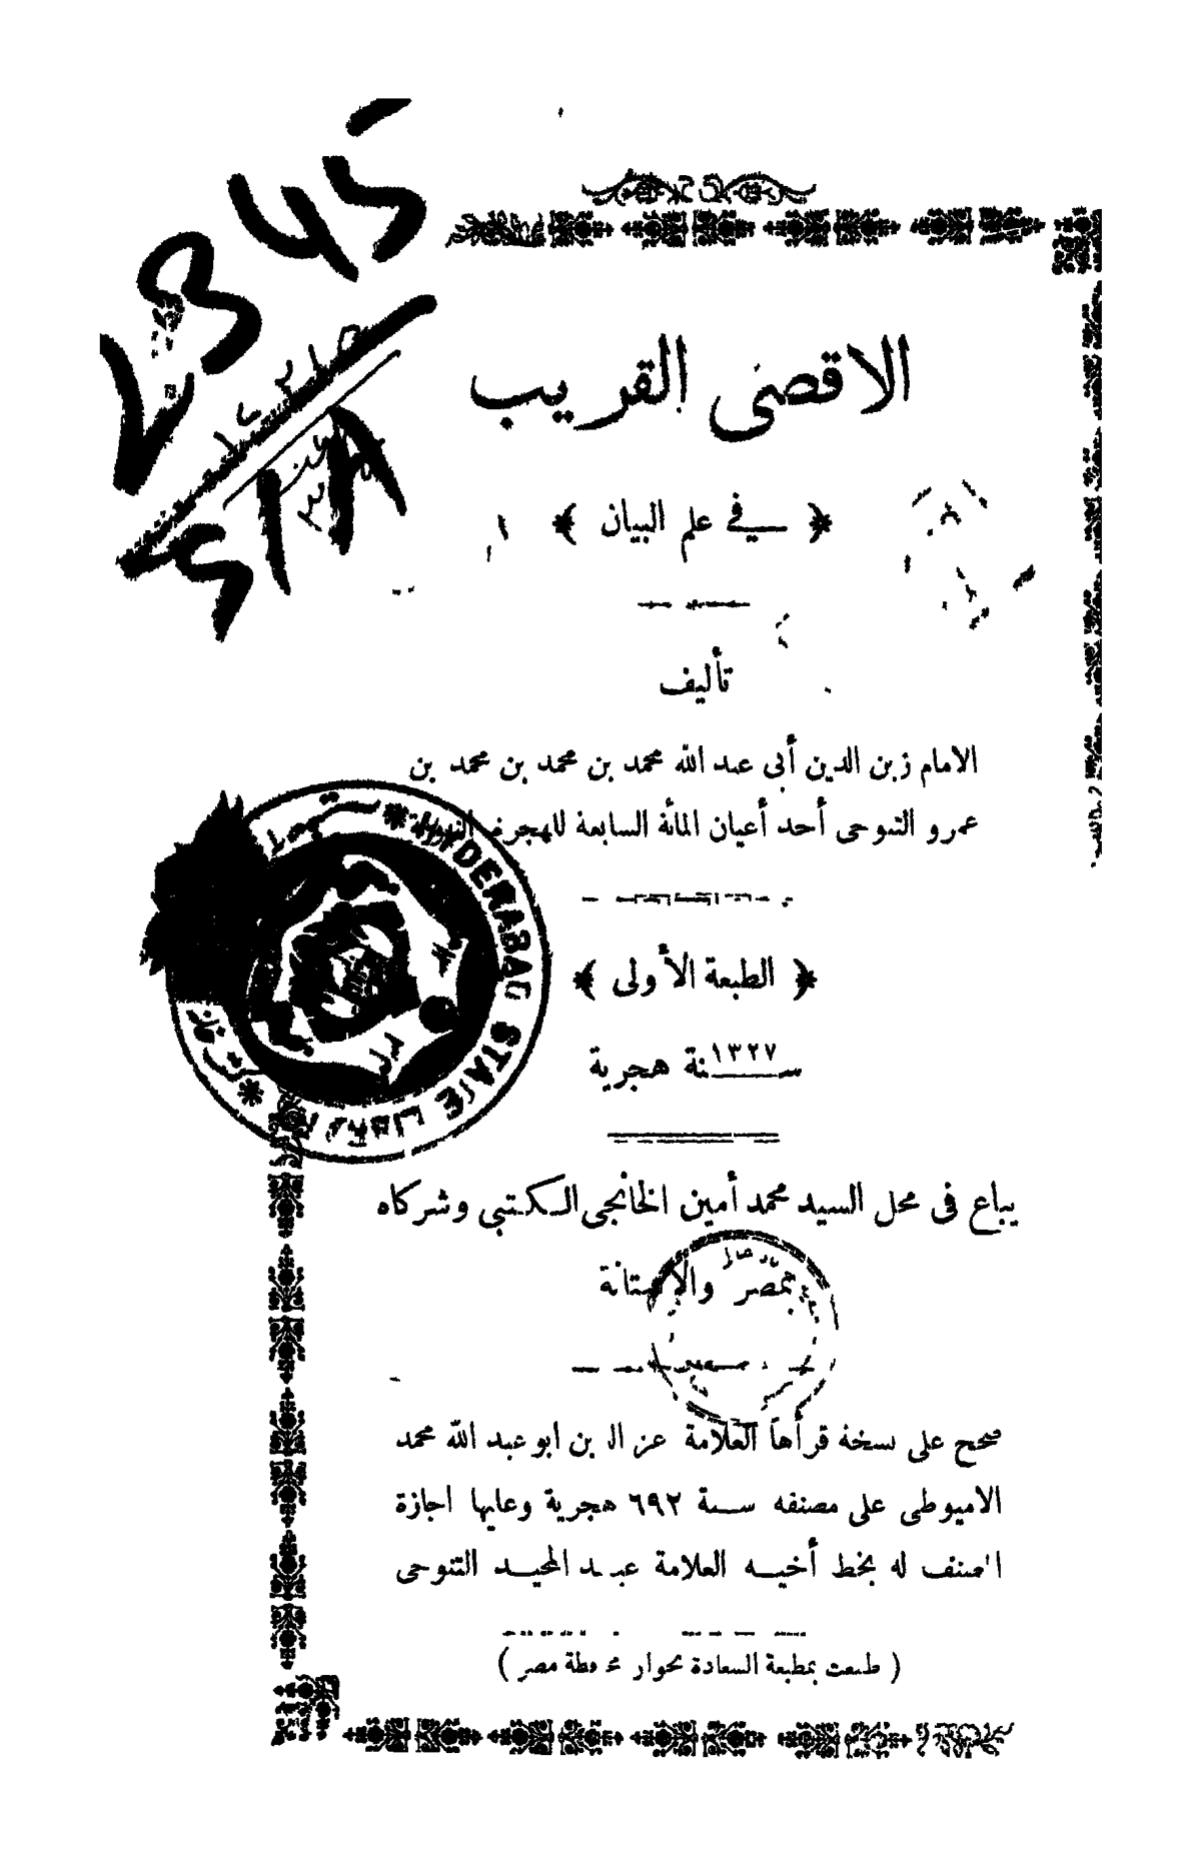 الاقصى القريب
﴿ في علم البيان ﴾
تأليف
الامام زين الدين أبي عبد الله محمد بن محمد بن محمد بن
عمرو التنوحى أحد أعيان المائة السابعة للهجرة
﴿ الطبعة الأولى ﴾
سنة ١٣٢٧ هجرية
يباع فى محل السيد محمد أمين الخانجى الكتبي وشركاه
بمصر والاستانة
صحح على نسخة قرأها العلامة عز الدين ابو عبد الله محمد
الاميوطى على مصنفه سنة ٦٩٢ هجرية وعليها اجازة
المصنف له بخط أخيه العلامة عبد المجيد التنوحى
( طبعت بمطبعة السعادة بجوار محافظة مصر )
HYDERABAD STATE LIBRARY